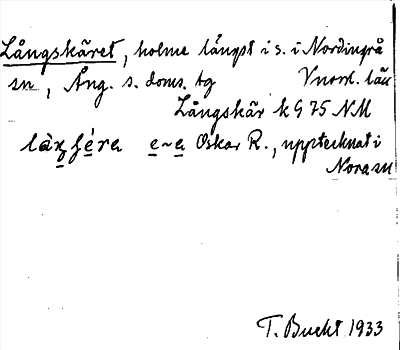 Långskäret, holme längst i s. i Nordingrå
sn, Ång. s. doms. tg Vnord. län
Långskär k G 75 NM
e~a Oskar R., upptecknat i
Nora sn
T. Bucht 1933